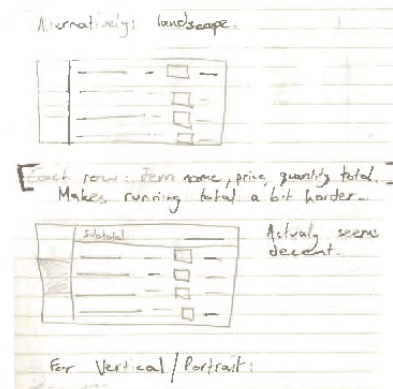 Alternatively: landscape.
Each row: Item name, price, quantity total.
Makes running total a bit harder..
Subtotal
Actualy seems
decent.
For Vertical/Portrait: